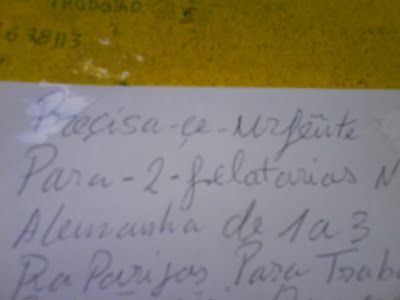 Trabalho
638113
Preçisa-çe-Urgẽnte
Para-2-gelatarias N
Alemanha de 1 a 3
RaParigas Para Trab